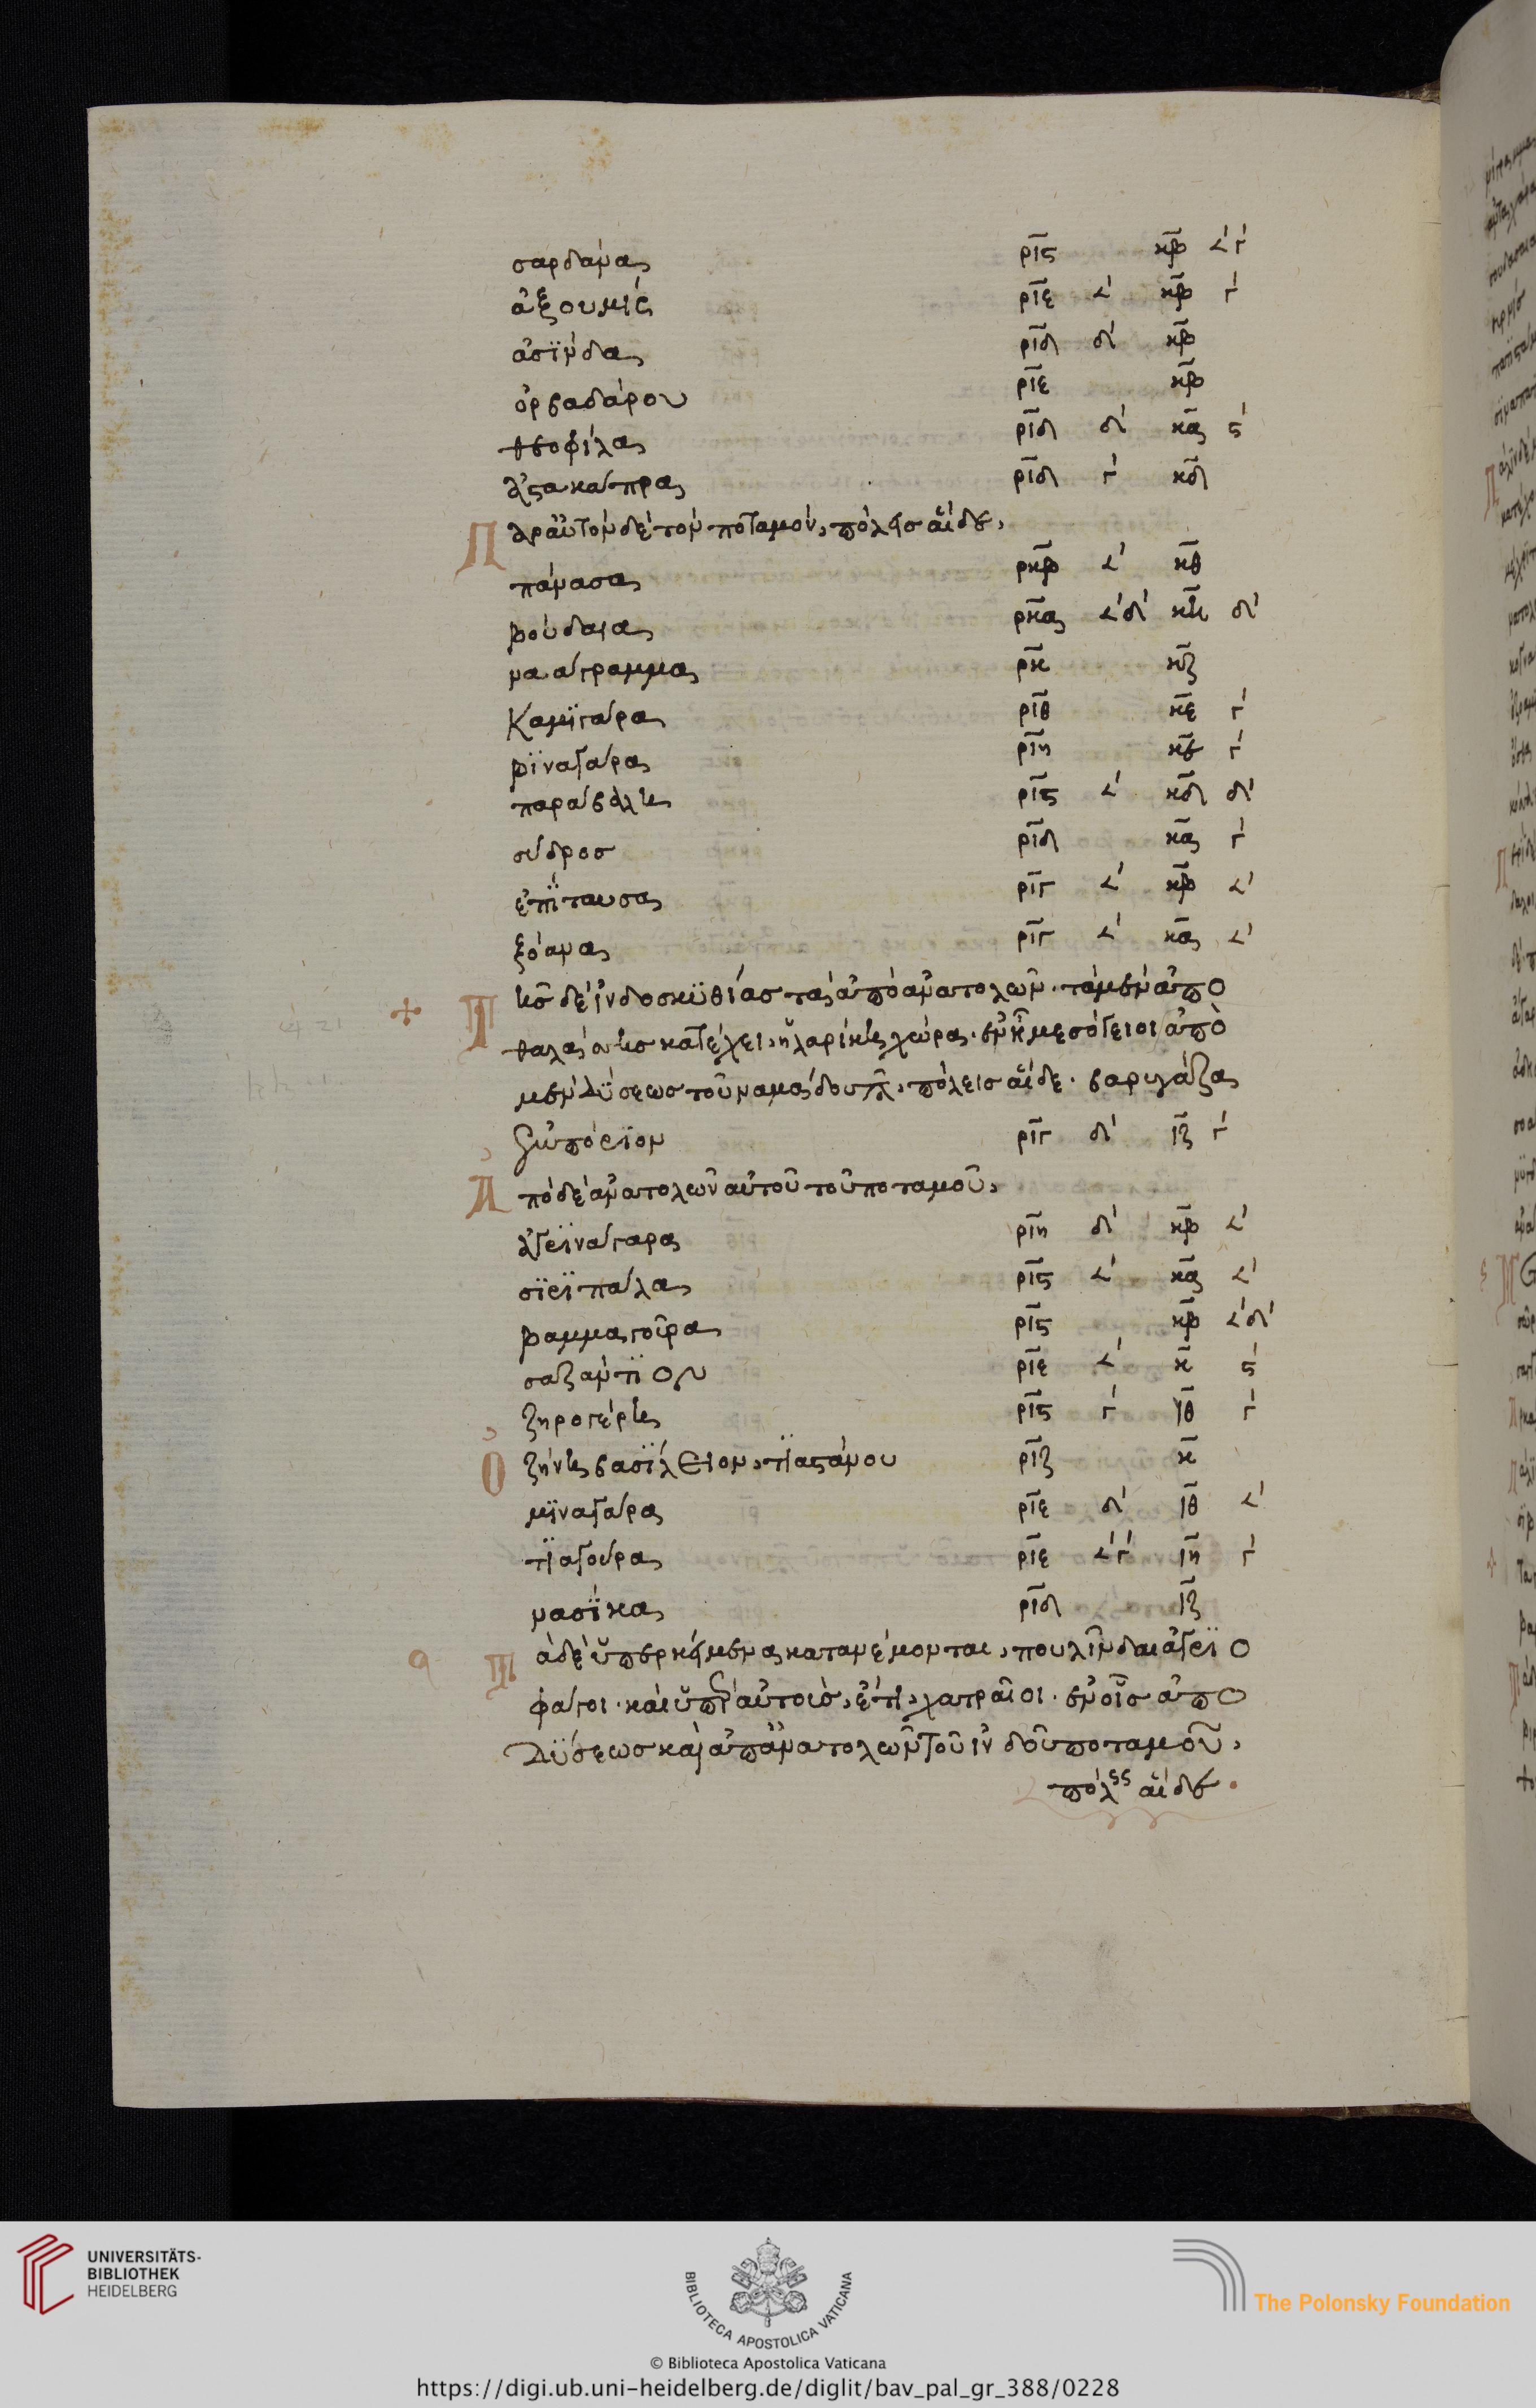 σαρδάνα ριϛ κβ ∠γ
ἀξουμίς ριε ∠ κβ γ
ἀσΐνδα ριδ δ κβ
ὀρβαδάρου ριε κβ
θεοφίλα ριδ δ κα ϛ
ἀστακάπρα ριδ γ κδ
Παρ αὐτὸν δὲ τὸν ποταμόν, πόλεισ αἵδε,
πάνασα ρκβ ∠ κθ
βούδαια ρκα ∠δ κη δ
νααγραμμα ρκ κζ
Καμϊγάρα ριθ κε γ
βϊναγάρα ριη κε γ
παραβάλη ριϛ ∠ κδ δ
σύδροσ ριδ κα γ
ἐπΐταυσα ριγ ∠ κβ ∠
ξόανα ριγ ∠ κα ∠
Τῆσ δὲ ἰνδοσκϋθίασ τὰ ἀπὸ ἀνατολῶν. τὰ μὲν ἀπὸ
θαλάσσησ κατέχει, ἡ λαρικὴ χώρα. ἐν ᾗ μεσόγειοι ἀπὸ
μὲν δϋσεωσ τοῦ ναμάδου π, πόλεισ αἵδε. βαρυγάζα
ζωπόριον ριγ δ ιζ γ
Ἀπὸ δὲ ἀνατολῶν αὐτοῦ τοῦ ποταμοῦ,
ἀγρϊνάγαρα ριη δ κβ ∠
σϊρϊπάλα ριϛ ∠ κα ∠
βαμμαγοῦρα ριϛ κβ ∠δ
σαζάντϊον ριε ∠ κ ϛ
ζηρογέρη ριϛ γ ιθ γ
Ὀζήνη βασΐλειον, τϊαστάνου ριζ κ
μϊναγάρα ριε δ ιθ ∠
τϊαγούρα ριε ∠γ ιη γ
νασΐκα ριδ ιζ
Τὰ δὲ ὑπερκείμενα κατανέμονται, πουλῖνδαι ἀγρϊο
φάγοι. καὶ ὑπὲρ αὐτοισ, ἔτι, χατραῖοι. ἐν οἷσ ἀπὸ
δϋσεωσ καὶ ἀπ ἀνατολῶν τοῦ ἰνδοῦ ποταμοῦ,
πόλεις αἵδε.
UNIVERSITÄTS-
BIBLIOTHEK
HEIDELBERG
BIBLIOTECA APOSTOLICA VATICANA
The Polonsky Foundation
© Biblioteca Apostolica Vaticana
https://digi.ub.uni-heidelberg.de/diglit/bav_pal_gr_388/0228